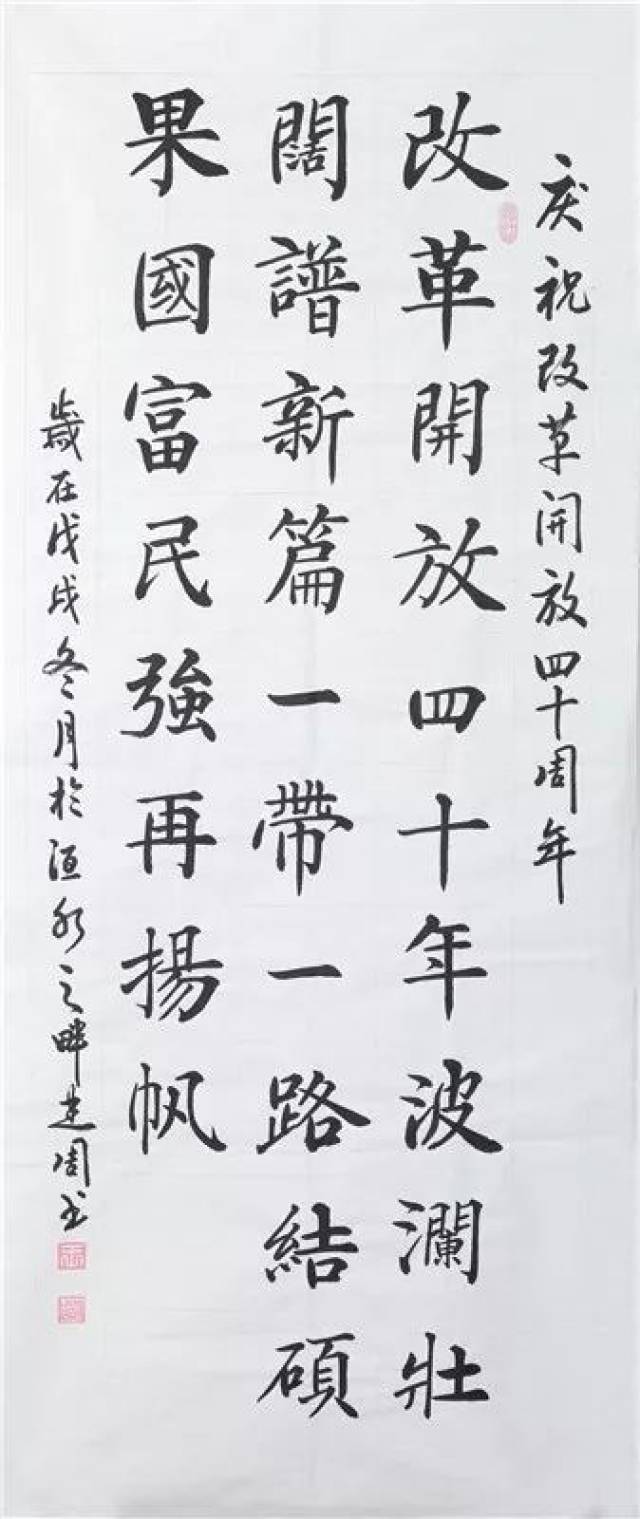 庆祝改革开放四十周年
改革開放四十年波瀾壯
闊譜新篇一帶一路結碩
果國富民強再揚帆
歲在戊戌冬月於洹水之畔建周书